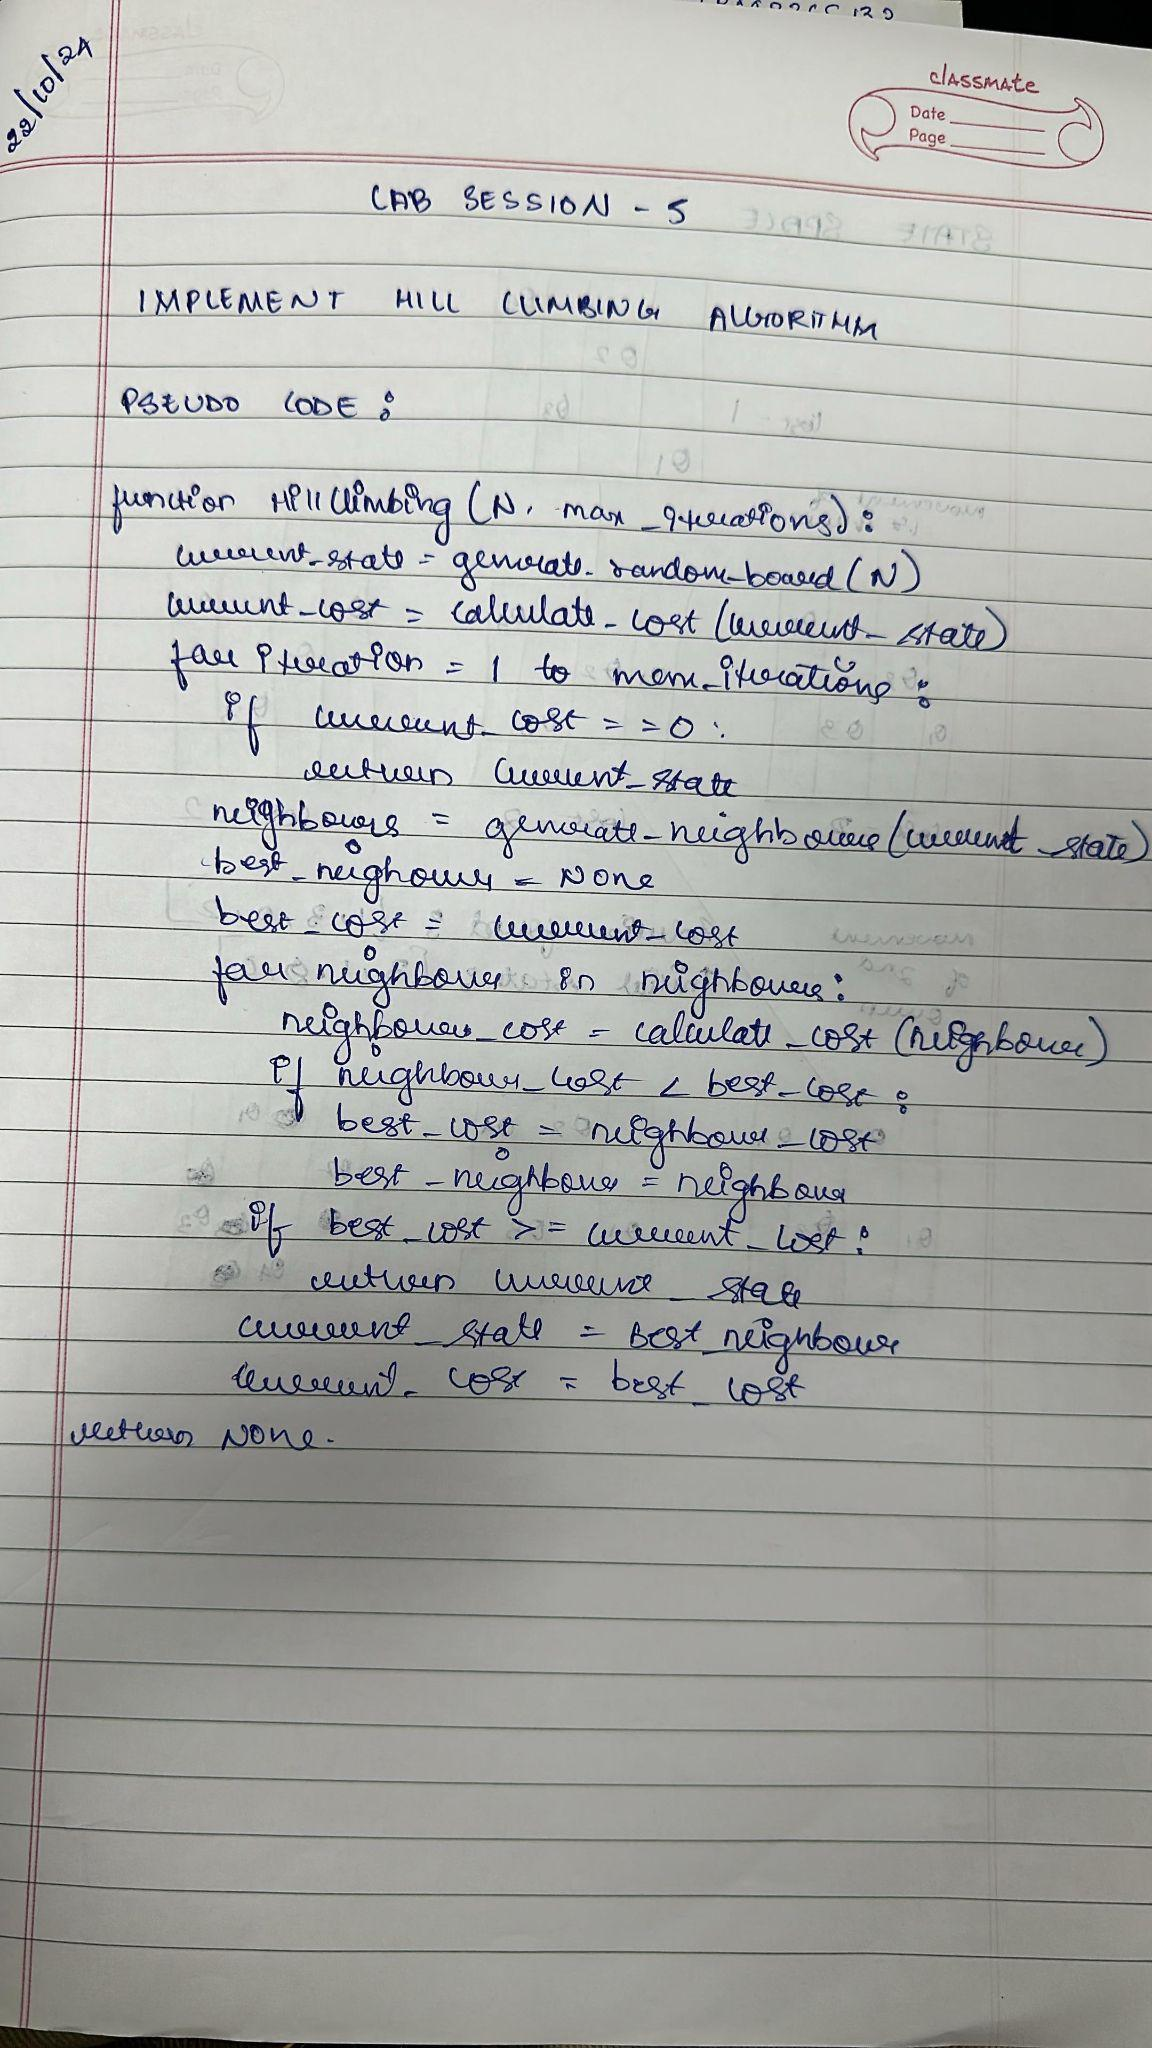 22/10/24
classmate
Date
Page
LAB SESSION - 5
IMPLEMENT HILL CLIMBING ALGORITHM
PSEUDO CODE :
function Hill Climbing (N, max_iterations) :
current_state = generate_random_board (N)
current_cost = calculate_cost (current_state)
for iteration = 1 to max_iterations :
if current_cost == 0 :
return current_state
neighbours = generate_neighbours (current_state)
best_neighour = None
best_cost = current_cost
for neighbour in neighbours :
neighbour_cost = calculate_cost (neighbour)
if neighbour_cost < best_cost :
best_cost = neighbour_cost
best_neighbour = neighbour
if best_cost >= current_cost :
return current_state
current_state = Best_neighbour
current_cost = best_cost
return None.